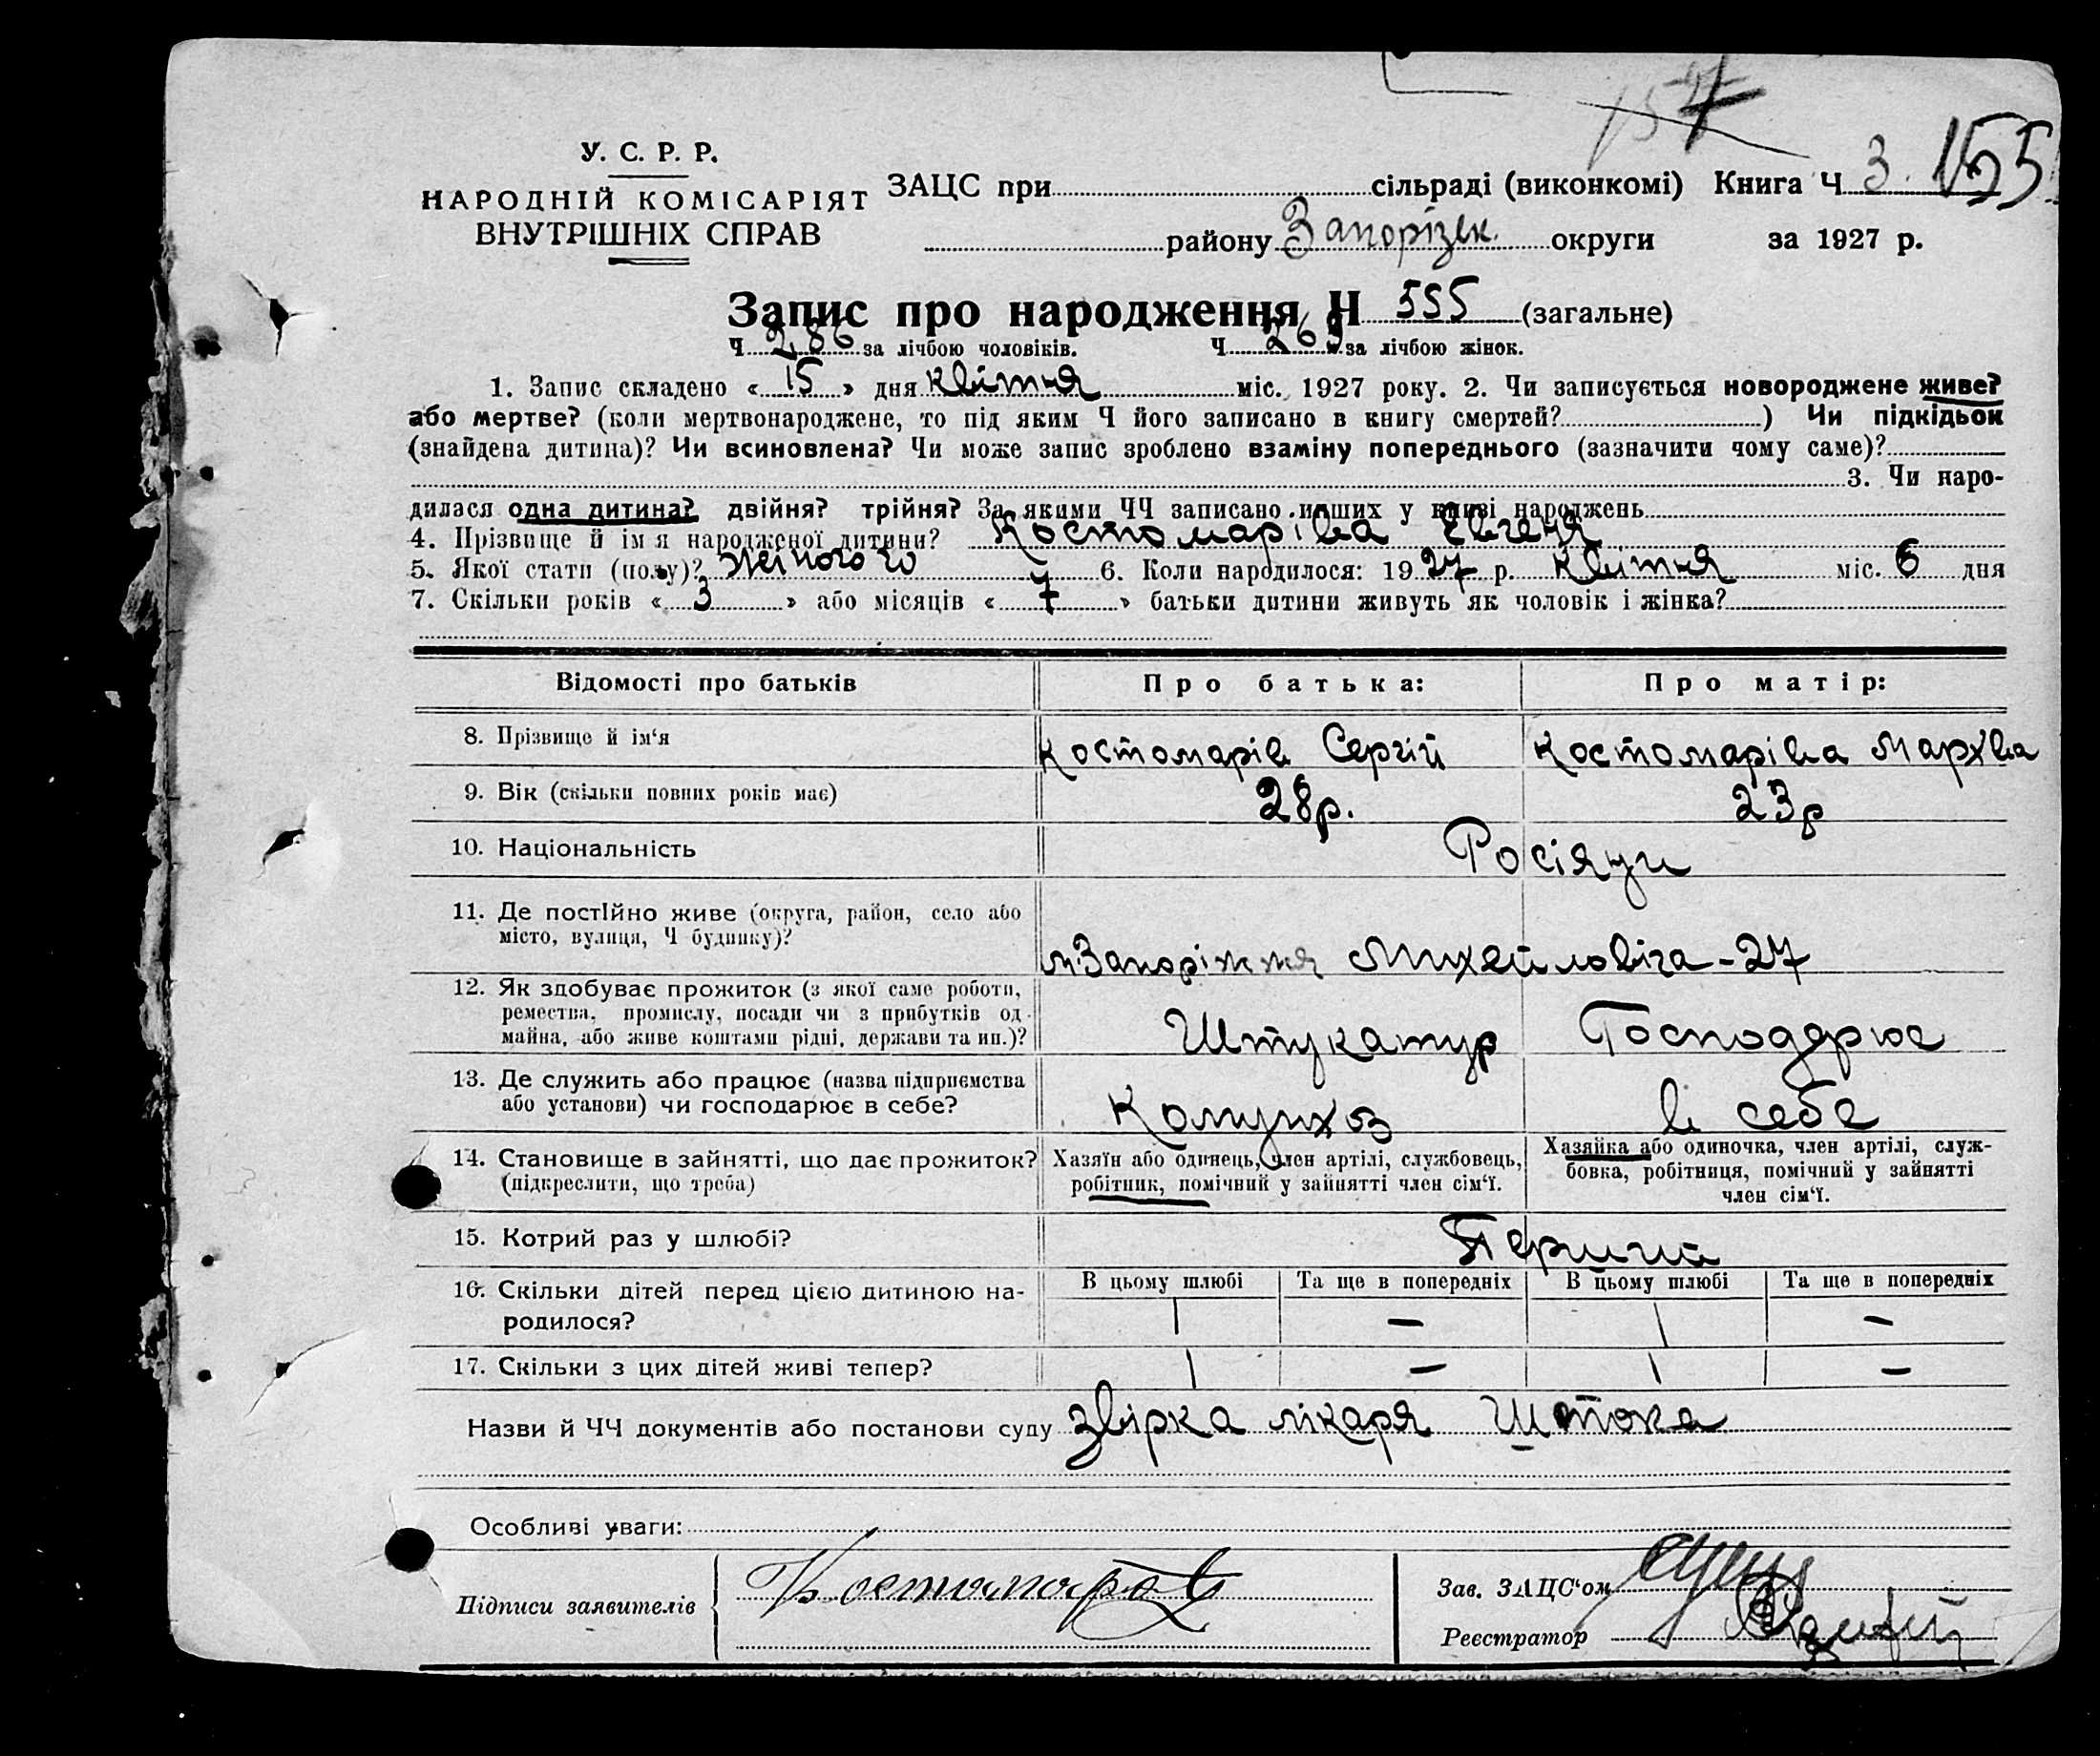 157
У. С. Р. Р.
НАРОДНІЙ КОМІСАРІЯТ
ВНУТРІШНІХ СПРАВ
ЗАЦС при сільраді (виконкомі) Книга Ч 3. 155
району Запорізьк. округи за 1927 р.
Запис про народження Ч 555 (загальне)
Ч 286 за лічбою чоловіків. Ч 269 за лічбою жінок.
1. Запис складено « 15 » дня квітня міс. 1927 року. 2. Чи записується новороджене живе?
або мертве? (коли мертвонароджене, то під яким Ч його записано в книгу смертей? ) Чи підкідьок
(знайдена дитина)? Чи всиновлена? Чи може запис зроблено взаміну попереднього (зазначити чому саме)?
3. Чи наро-
дилася одна дитина? двійня? трійня? За якими ЧЧ записано инших у книзі народжень
4. Прізвище й ім я народженої дитини? Костомарівa Євгеня
5. Якої стати (полу)? жіночого 6. Коли народилося: 1927 р. квітня міс. 6 дня
7. Скільки років « 3 » або місяців « 7 » батьки дитини живуть як чоловік і жінка?
Відомості про батьків Про батька: Про матір:
8. Прізвище й ім‘я Костомарів Сергій Костомаріва Мархва
9. Вік (скільки повних років має) 28р. 23р
10. Національність Росіяни
11. Де постІйно живе (округа, район, село або
місто, вулиця, Ч будинку)? м.Запоріжжя Михайловіча-27
12. Як здобуває прожиток (з якої саме роботи,
ремества, промислу, посади чи з прибутків од
майна, або живе коштами рідні, держави та ин.)? Штукатур Господрює
13. Де служить або працює (назва підприємства
або установи) чи господарює в себе? Комунхоз в себе
14. Становище в зайнятті, що дає прожиток?
(підкреслити, що треба)
Хазяїн або одинець, член артілі, службовець,
робітник, помічний у зайнятті член сім‘ї.
Хазяйка або одиночка, член артілі, служ-
бовка, робітниця, помічний у зайнятті
член сім‘ї.
15. Котрий раз у шлюбі? Перший
В цьому шлюбі Та ще в попередніх В цьому шлюбі Та ще в попередніх
16. Скільки дітей перед цією дитиною на-
родилося? 1 — 1 —
17. Скільки з цих дітей живі тепер? 1 — 1 —
Назви й ЧЧ документів або постанови суду звірка лікаря Штока
Особливі уваги:
Підписи заявителів Костомаров
Зав. ЗАЦС‘ом
Реєстратор